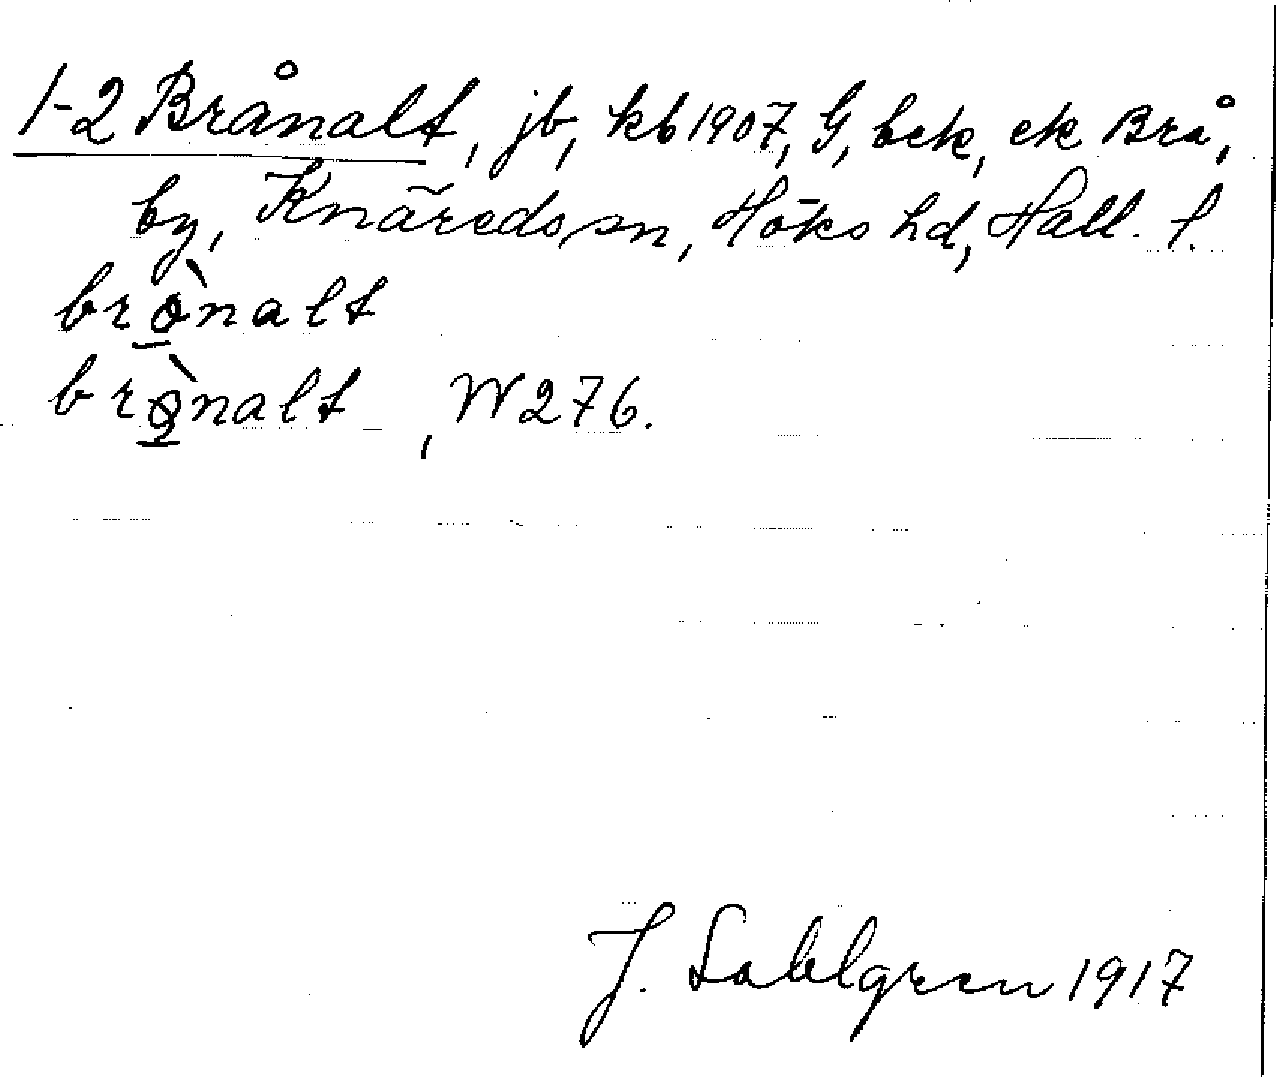 1-2 Brånalt, jb, kb 1907, G, bek, ek Brå,
by, Knäreds sn, Höks hd, Hall. l.
brò̲nalt
brò̲nalt, W 276.
J. Sahlgren 1917